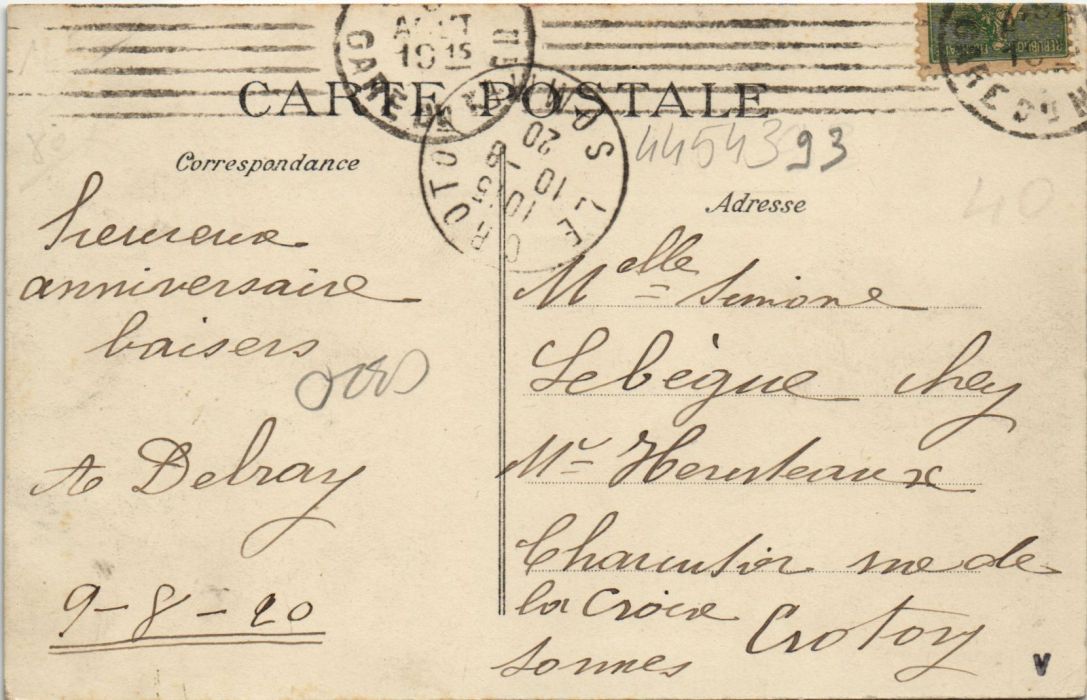 CARTE POSTALE
Correspondance
heureux
anniversaire
baisers
A Delray
9-8-20
4454393
40
Adresse
Melle Simone
Lebègue chez
Mr
Charcutier rue de
la Croix Crotoy
Sommes
LE CROTOY
10 15
10 - 8
20
AOUT
19 15
GARE DU
V